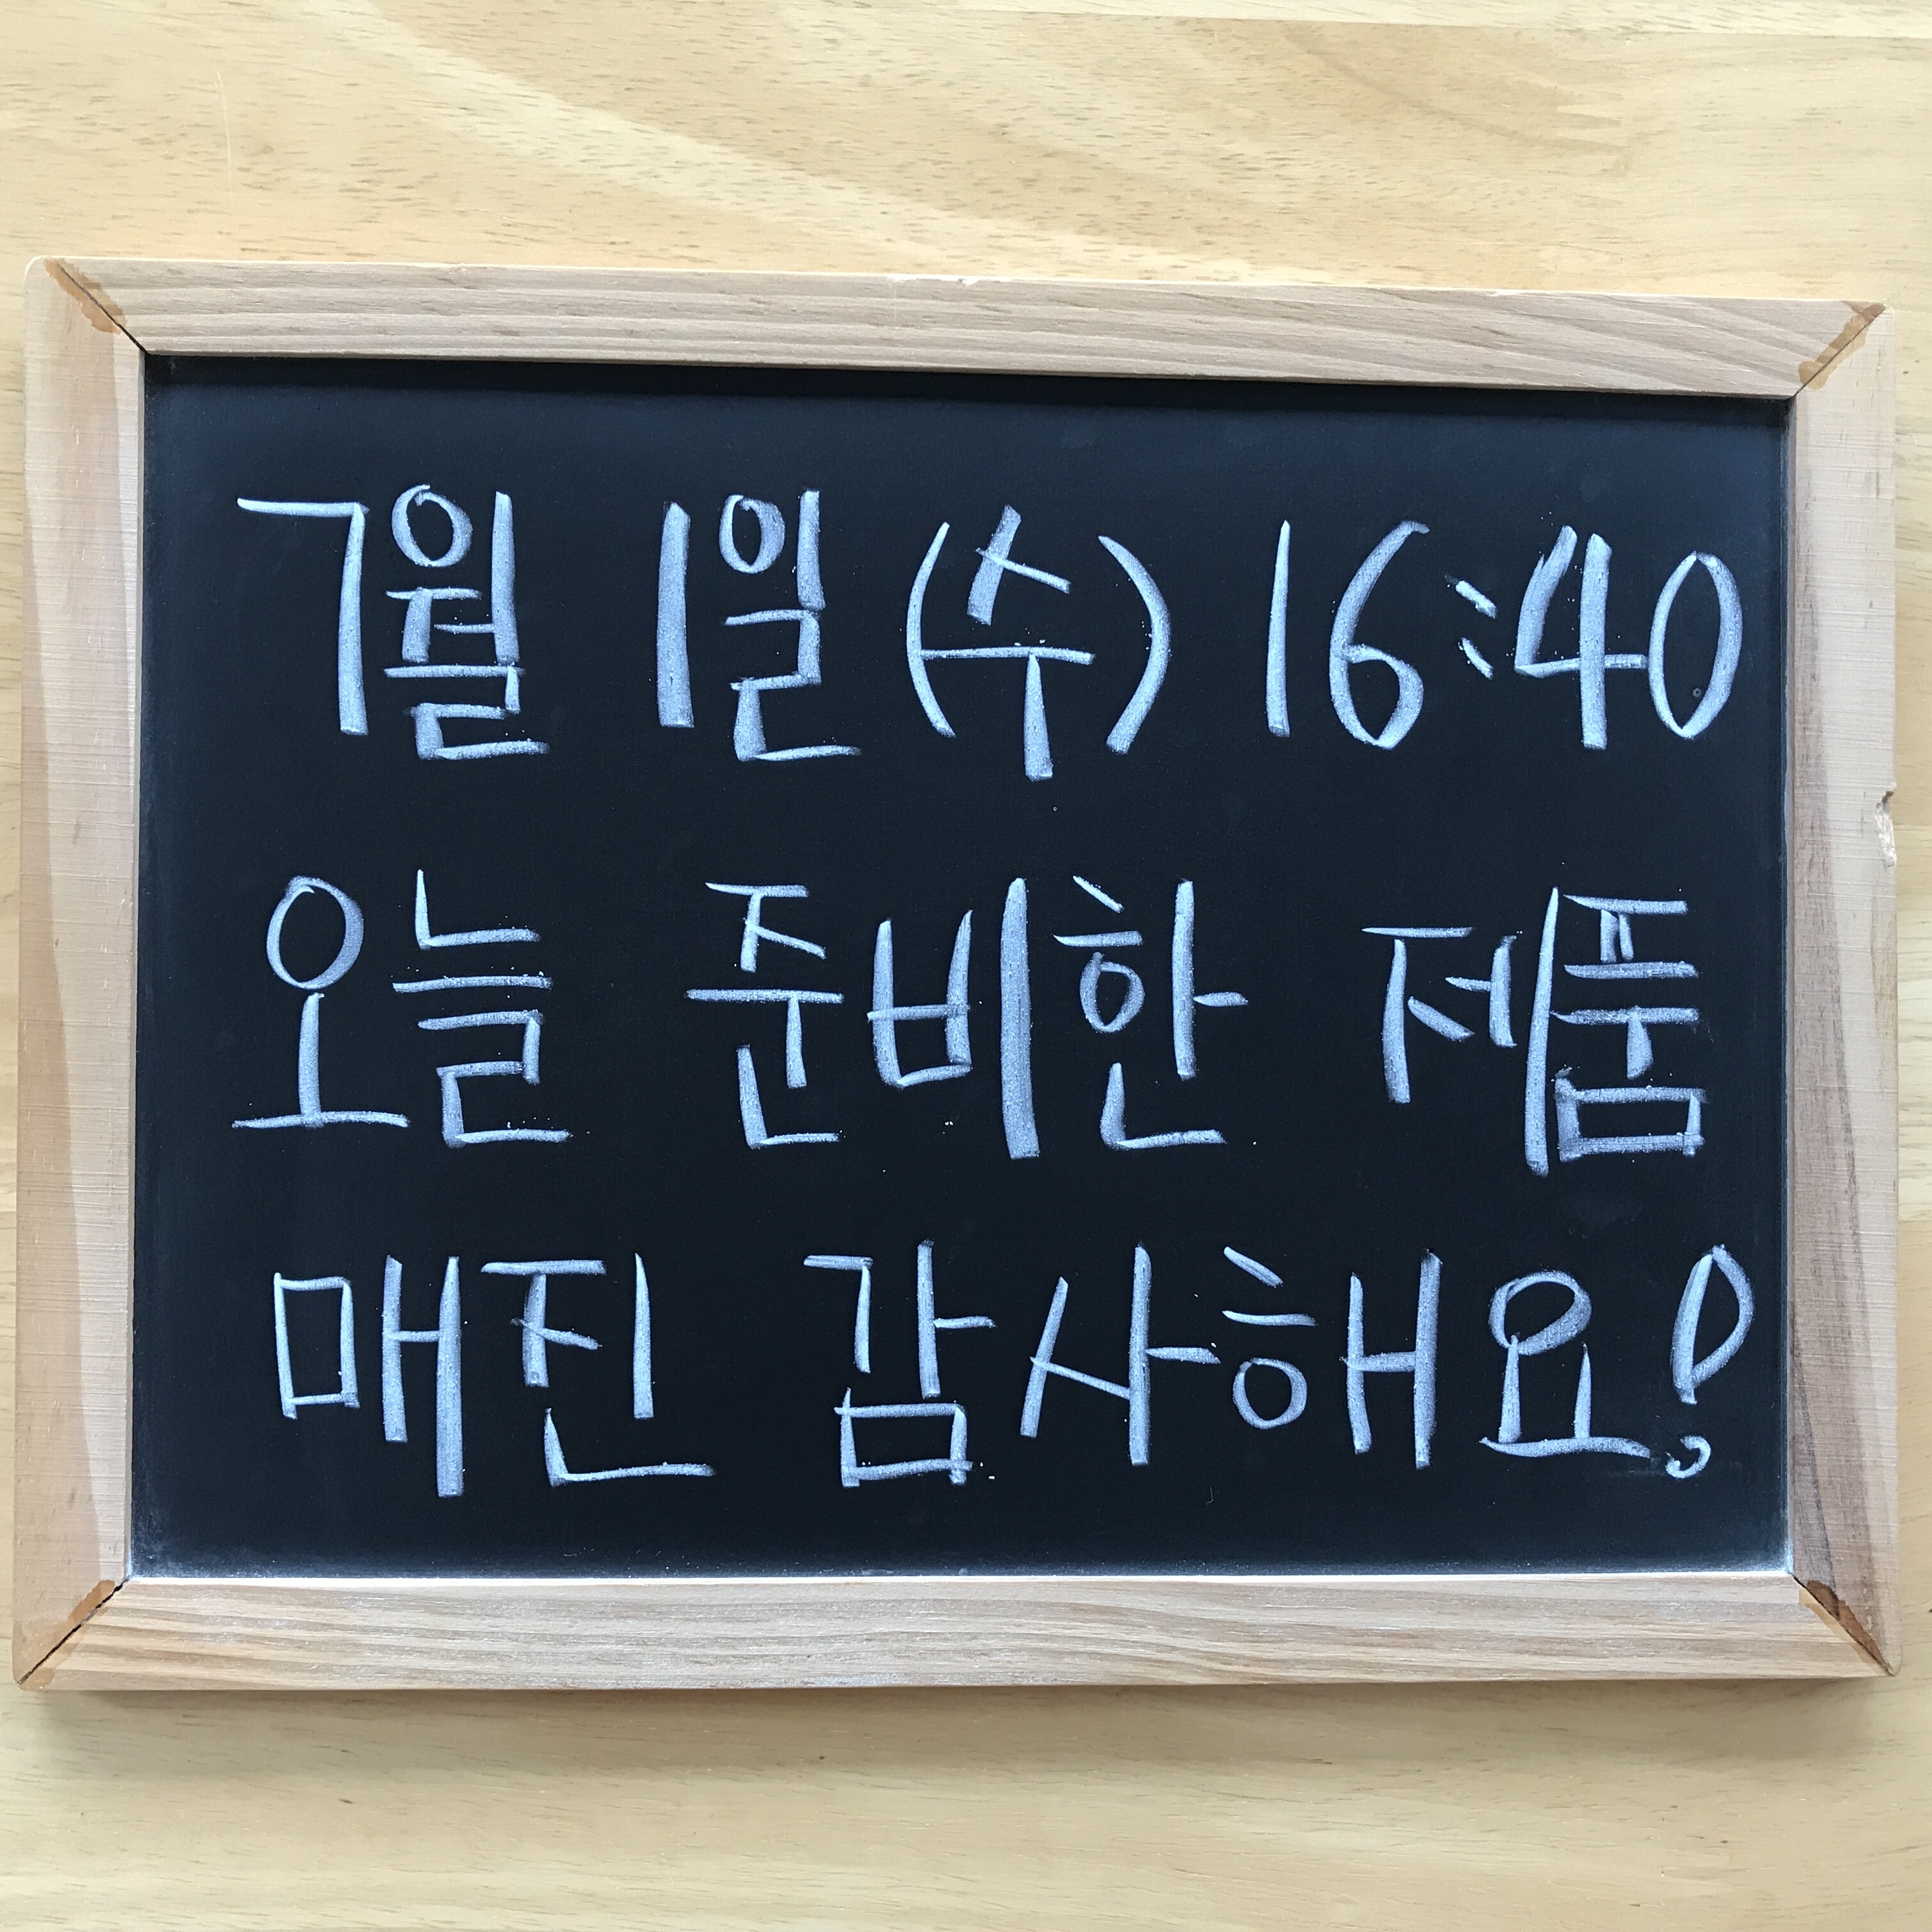 7월 1일 (수) 16:40
오늘 준비한 제품
매진 감사해요!